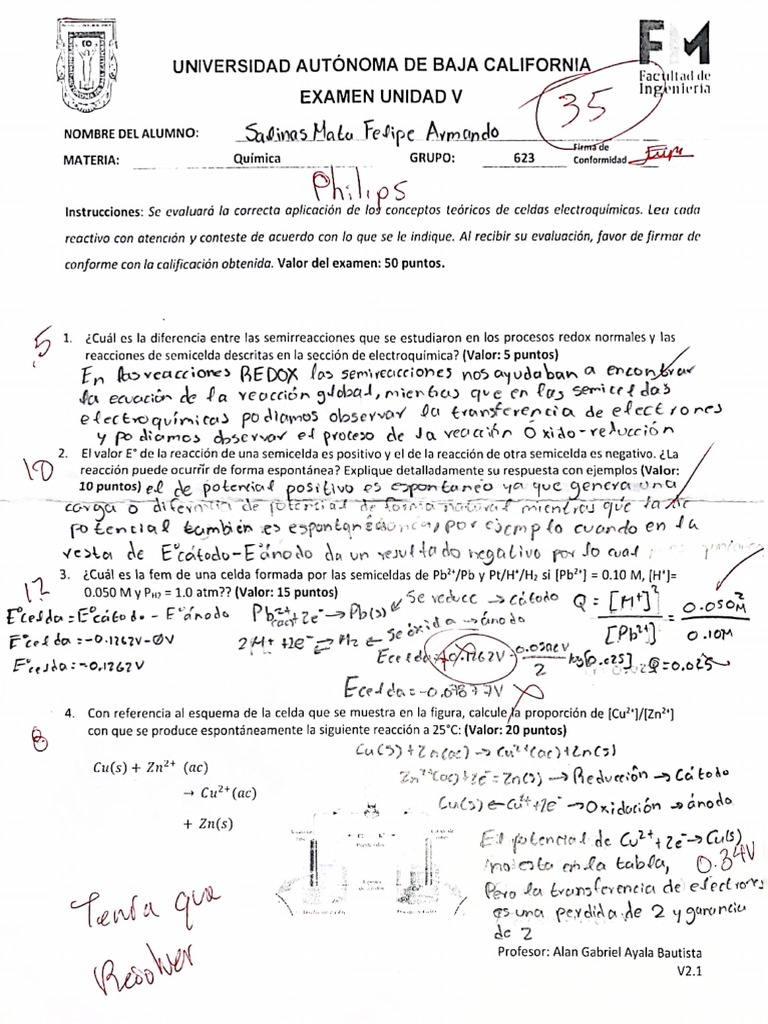 UNIVERSIDAD AUTÓNOMA DE BAJA CALIFORNIA
EXAMEN UNIDAD V
FIM
Facultad de
Ingeniería
35
NOMBRE DEL ALUMNO: Salinas Mata Felipe Armando
Firma de
Conformidad
MATERIA: Química GRUPO: 623
Philips
Instrucciones: Se evaluará la correcta aplicación de los conceptos teóricos de celdas electroquímicas. Lea cada
reactivo con atención y conteste de acuerdo con lo que se le indique. Al recibir su evaluación, favor de firmar de
conforme con la calificación obtenida. Valor del examen: 50 puntos.
5
1. ¿Cuál es la diferencia entre las semirreacciones que se estudiaron en los procesos redox normales y las
reacciones de semicelda descritas en la sección de electroquímica? (Valor: 5 puntos)
En las reacciones REDOX las semireacciones nos ayudaban a encontrar
la ecuación de la reacción global, mientras que en las semiceldas
electroquímicas podiamos observar la transferencia de electrones
y podiamos observar el proceso de la reacción Óxido-reducción
10
2. El valor E° de la reacción de una semicelda es positivo y el de la reacción de otra semicelda es negativo. ¿La
reacción puede ocurrir de forma espontánea? Explique detalladamente su respuesta con ejemplos (Valor:
10 puntos) el de potencial positivo es espontaneo ya que genera una
carga o diferencia de potencial de forma natural mientras que la de
potencial también es por ejemplo cuando en la
resta de E°cátodo-E°ánodo da un resultado negativo por lo cual
12
3. ¿Cuál es la fem de una celda formada por las semiceldas de Pb²⁺/Pb y Pt/H⁺/H₂ si [Pb²⁺] = 0.10 M, [H⁺]=
0.050 M y P_H2 = 1.0 atm?? (Valor: 15 puntos)
E°celda=E°cátodo - E°ánodo
E°celda=-0.1262V-0V
E°celda=-0.1262V
Pb²⁺(ac)+2e⁻→Pb(s) ← Se reduce → cátodo
2H⁺+2e⁻⇌H₂ ← Se óxida → ánodo
Q = [H⁺]²/[Pb²⁺] = 0.050M²/0.10M
Q=0.025
Ecelda= -0.1262V - 0.0592V/2 log[0.025]
Ecelda=-0.07877V
8
4. Con referencia al esquema de la celda que se muestra en la figura, calcule la proporción de [Cu²⁺]/[Zn²⁺]
con que se produce espontáneamente la siguiente reacción a 25°C: (Valor: 20 puntos)
Cu(s) + Zn²⁺ (ac)
→ Cu²⁺(ac)
+ Zn(s)
Cu(s)+Zn(ac)→Cu²⁺(ac)+Zn(s)
Zn²⁺(ac)+2e⁻=Zn(s) → Reducción → Cátodo
Cu(s)←Cu²⁺+2e⁻ → Oxidación → ánodo
El potencial de Cu²⁺+2e⁻→Cu(s)
no esta en la tabla, 0.34V
Pero la transferencia de electrones
es una perdida de 2 y ganancia
de 2
Tenía que
Resolver
Profesor: Alan Gabriel Ayala Bautista
V2.1